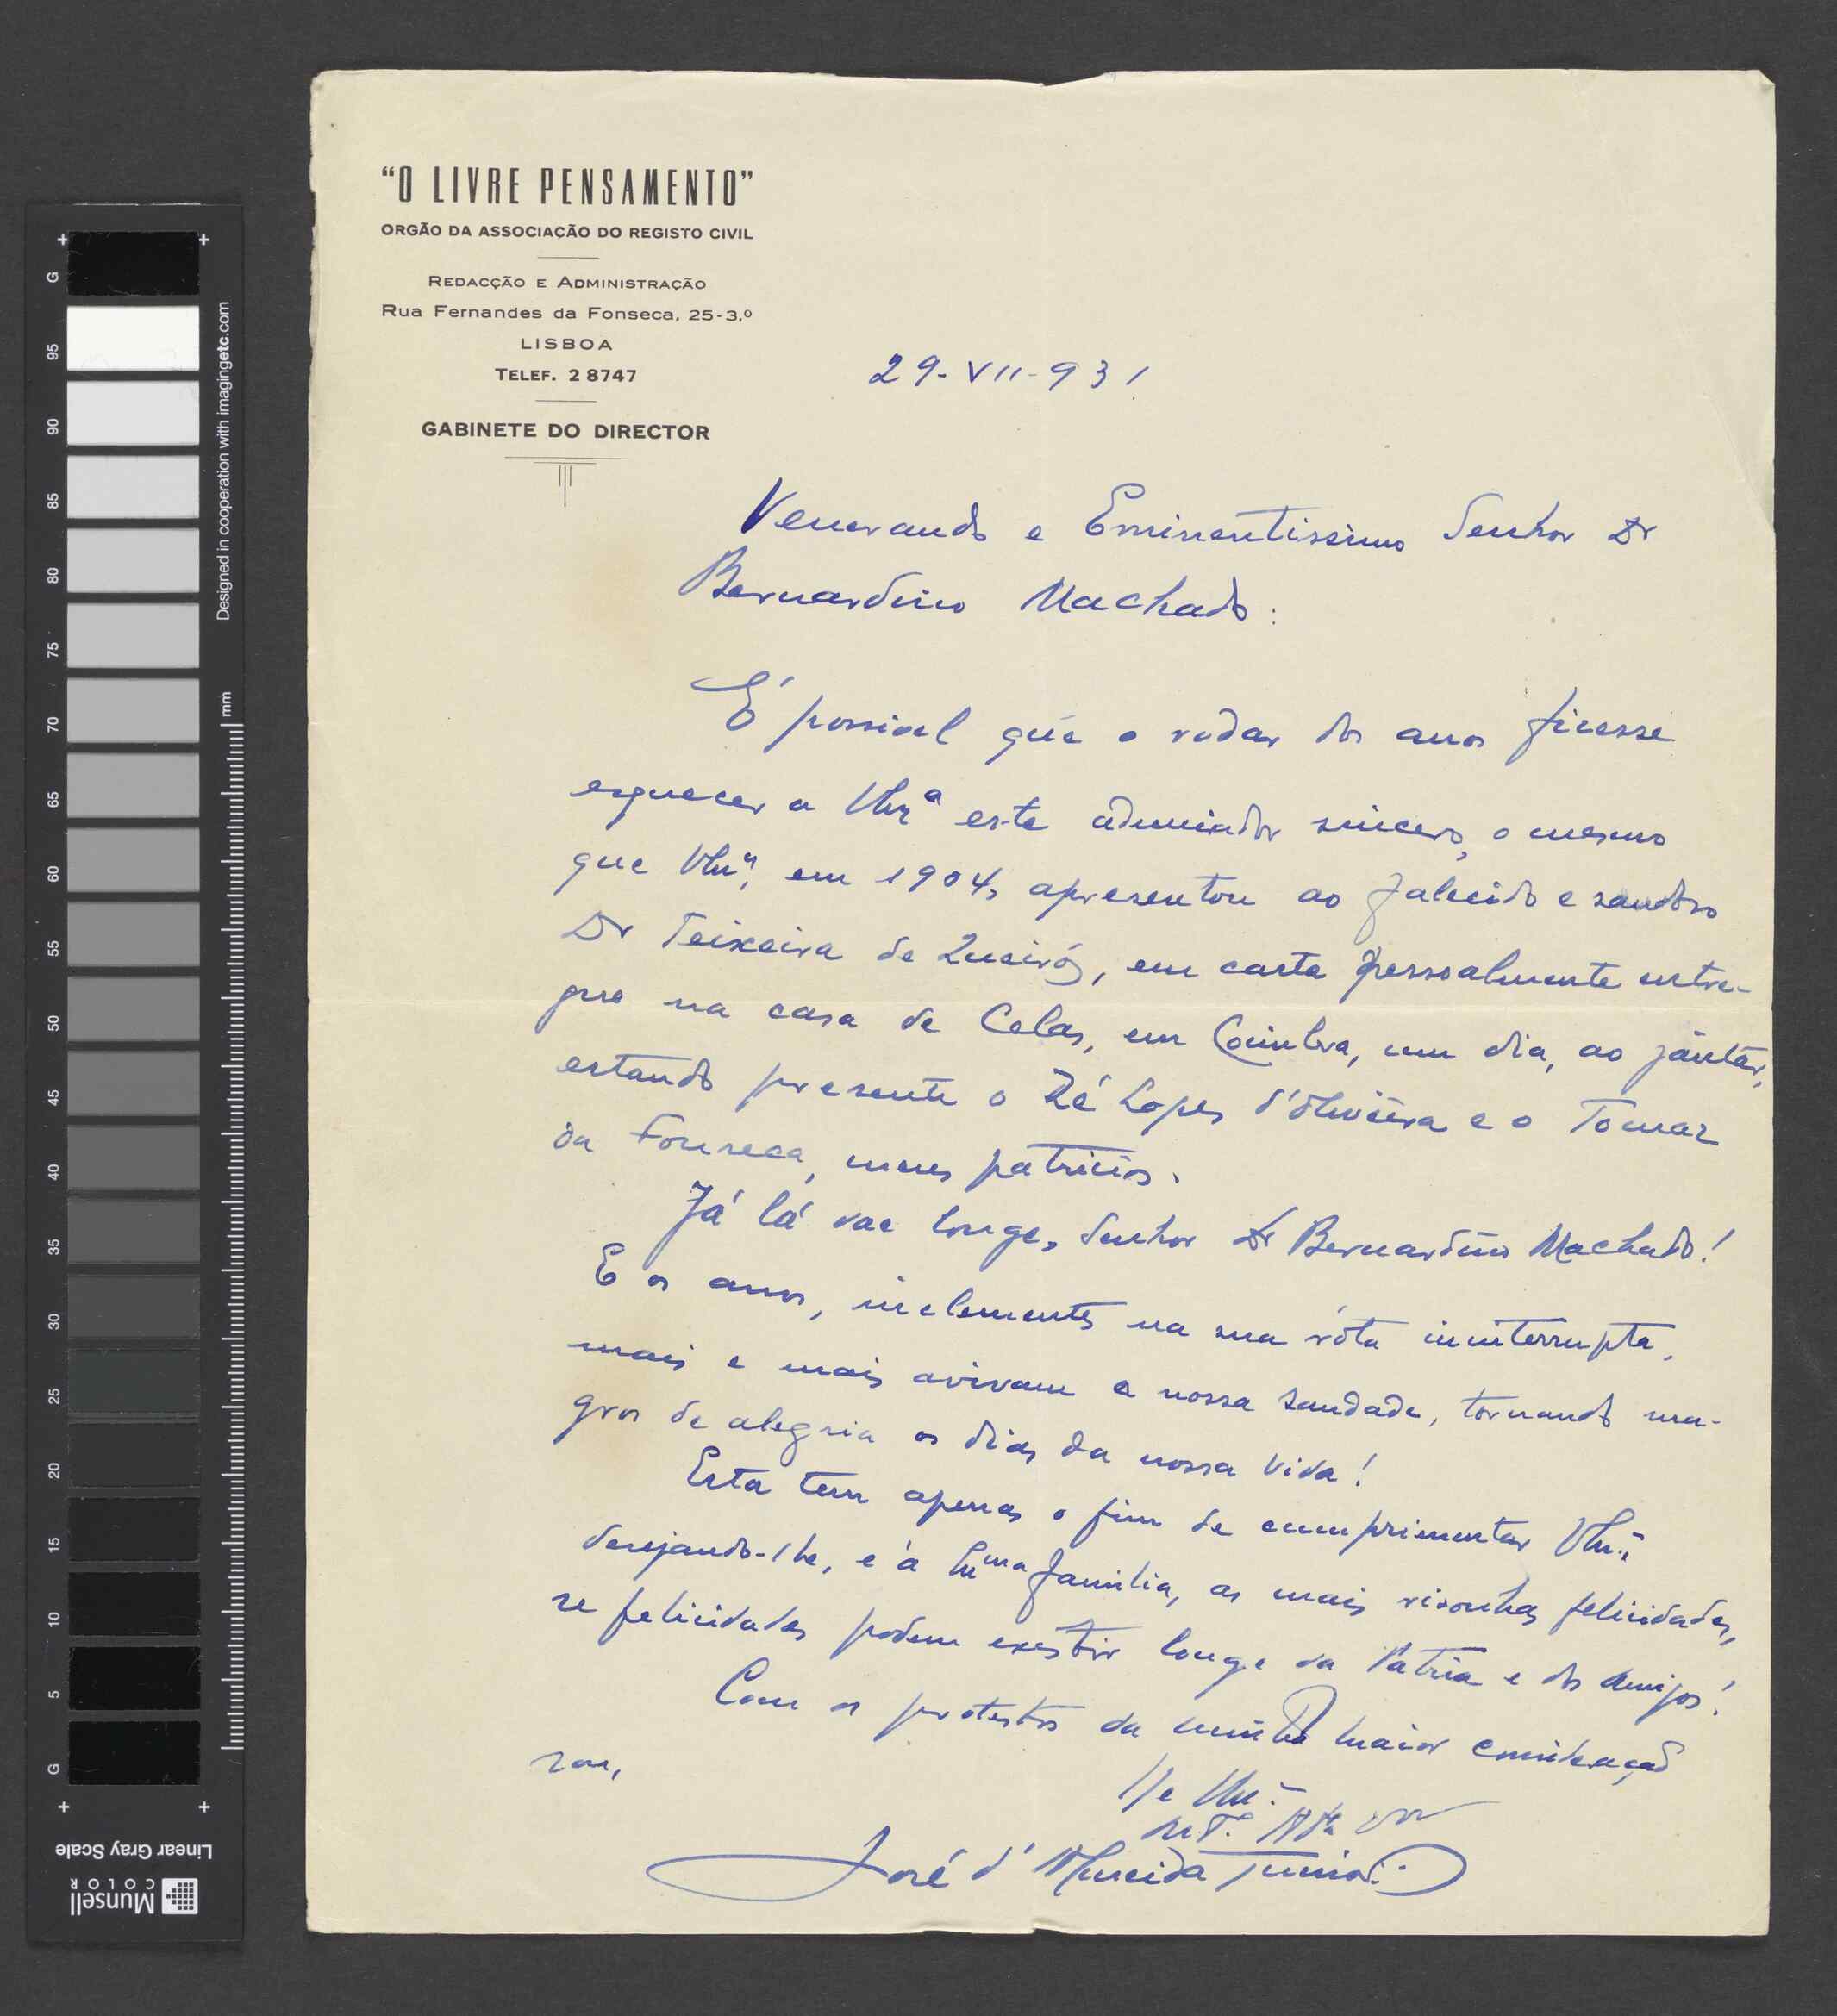 "O LIVRE PENSAMENTO"
ORGÃO DA ASSOCIAÇÃO DO REGISTO CIVIL
REDACÇÃO E ADMINISTRAÇÃO
Rua Fernandes da Fonseca, 25-3.º
LISBOA
TELEF. 2 8747
GABINETE DO DIRECTOR
29-VII-931
Venerando e Eminentissimo Senhor Dr
Bernardino Machado:
É possivel que o rodar dos anos fizesse
esquecer a V. este admirador sincero, o mesmo
que V. em 1904, apresentou ao falecido e saudoso
Dr Teixeira de Queiróz, em carta pessoalmente entre-
gue na casa de Celas, em Coimbra, um dia, ao jantar,
estando presente o Zé Lopes d'Oliveira e o Tomaz
da Fonseca, meus patricios.
Já lá vae longe, Senhor Dr Bernardino Machado!
E os anos, inclementes na sua róta ininterrupta,
mais e mais avivam a nossa saudade, tornando ma-
gros de alegria os dias da nossa vida!
Esta tem apenas o fim de cumprimentar
desejando-lhe, e á familia, as mais risonhas felicidades,
se felicidades podem existir longe da Patria e dos Amigos!
Com os protestos da minha maior consideração
sou,
De
José d'Almeida Junior
G 95 90 85 80 75 70 65 60 55 50 45 40 35 30 25 20 15 10 5 G
Designed in cooperation with imagingetc.com
mm
Linear Gray Scale
Munsell
COLOR